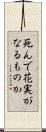 死んで花実が
なるものか